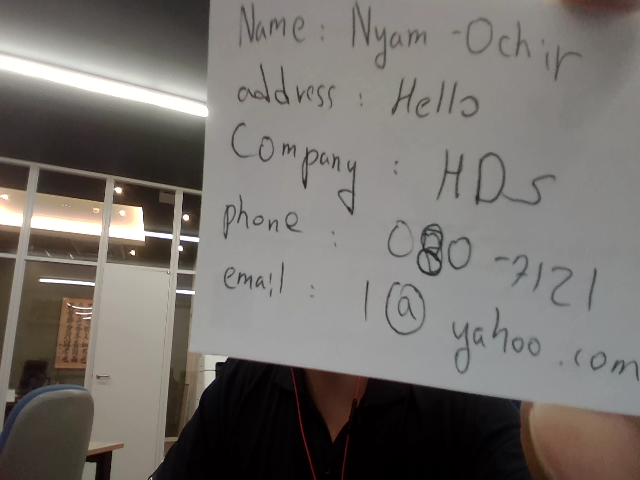 Name : Nyam - Ochir
address : Hello
Company : HDS
phone : 080 - 7121
email : 1@yahoo.com